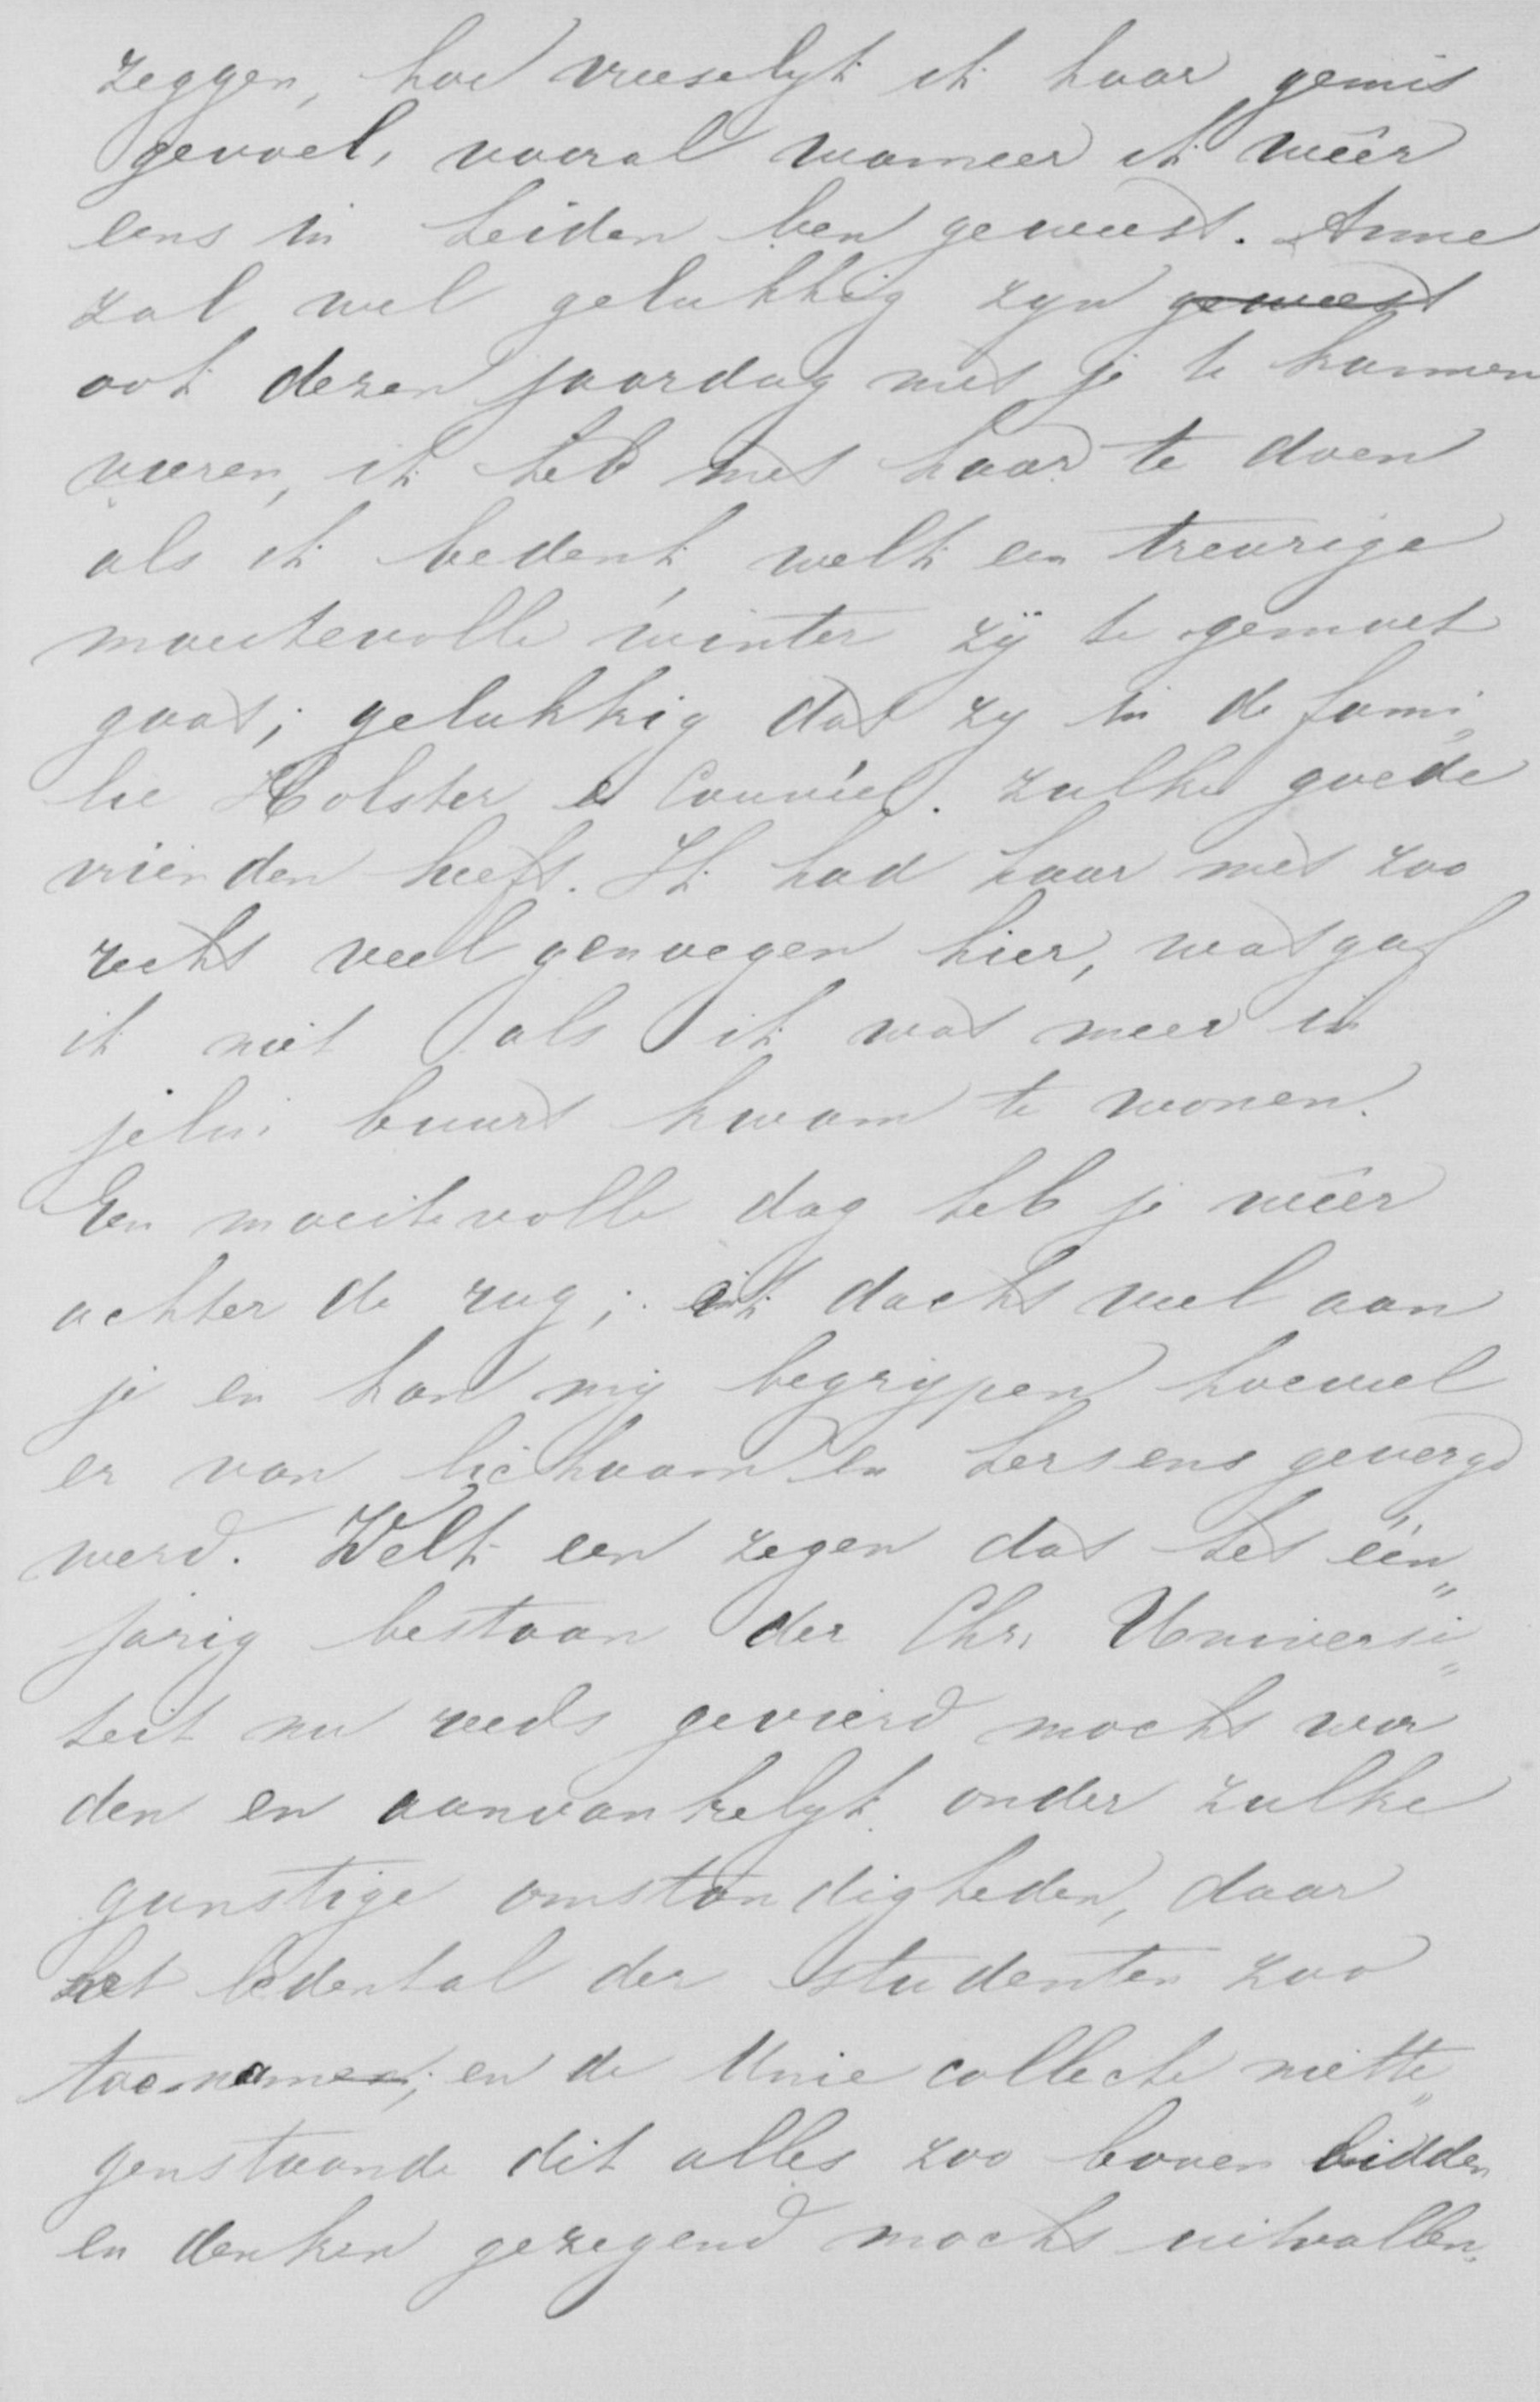 zeggen, hoe vreeselyk ik haar gemis
gevoel, vooral wanneer ik wêêr
eens in Leiden ben geweest. Anne
zal wel gelukkig zyn geweest
ook dezen jaardag met je te kunnen
vieren, ik heb met haar te doen
als ik bedenk, welk een treurige
moeitevolle winter zÿ te gemoet
gaat; gelukkig dat zy in de fami„
lie Holster zulke goede
vrienden heeft. Ik had haar met zoo
recht veel genoegen hier, wat gaf
ik niet als ik wat meer in
jelui buurt kwam te wonen.
Een moeitevolle dag heb je wêêr
achter de rug; ik dacht veel aan
je en kan mij begrijpen hoeveel
er van lichaam en hersens gevergd
werd. Welk een zegen dat het één„
jarig bestaan der Chr. Universi„
teit nu reeds gevierd mocht wor
den en aanvankelyk onder zulke
gunstige omstandigheden, daar
het ledental der studenten zoo
toenamen; en de Unie collecte niette„
genstaande dit alles zoo boven bidden
en denken gezegend mocht uitvallen.